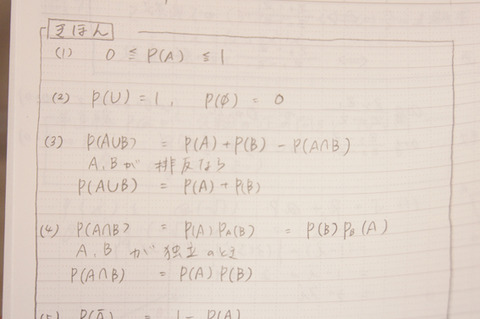 きほん
(1) 0 ≦ P(A) ≦ 1
(2) P(U) = 1, P(∅) = 0
(3) P(A∪B) = P(A) + P(B) - P(A∩B)
A, B が 排反なら
P(A∪B) = P(A) + P(B)
(4) P(A∩B) = P(A) P_A(B) = P(B) P_B(A)
A, B が独立のとき
P(A∩B) = P(A) P(B)
(5) P(Ā) = 1 - P(A)